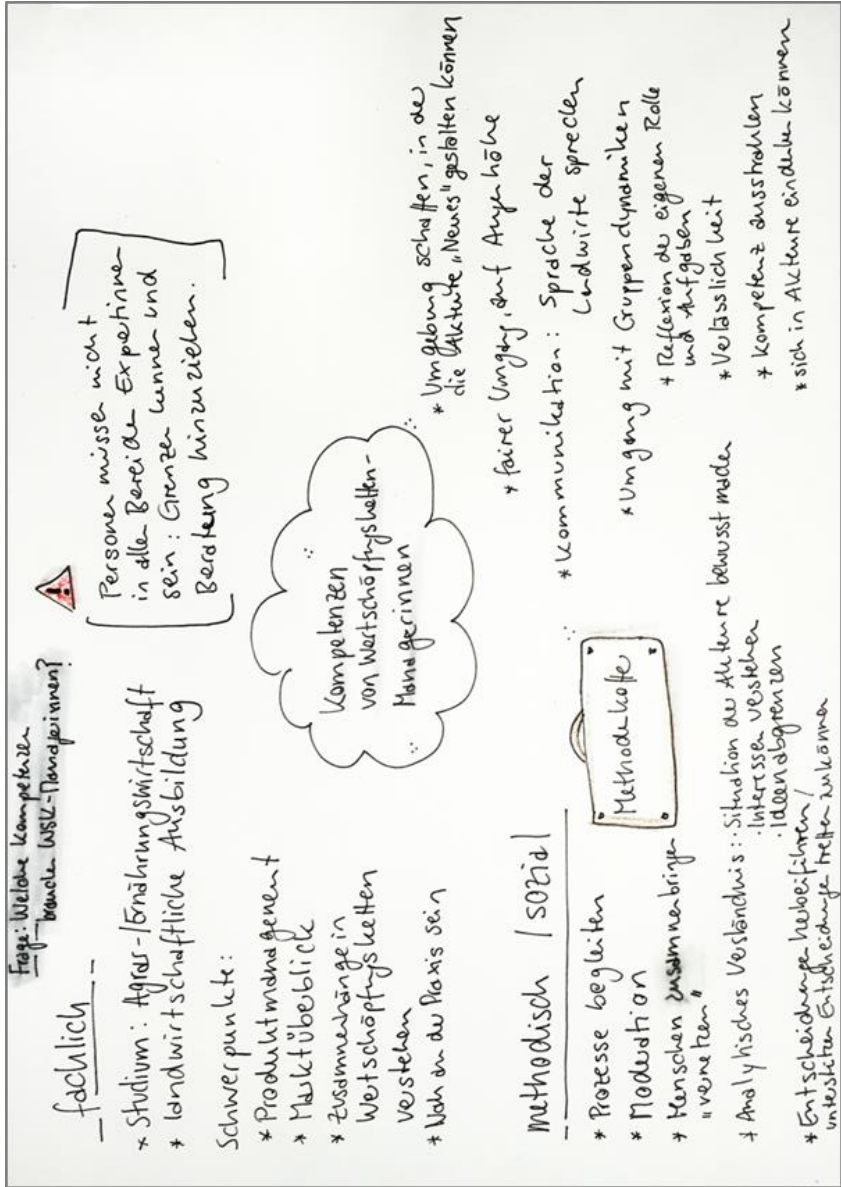 Frage: Welche Kompetenzen
brauchen WSK-Managerinnen?
fachlich
* Studium: Agrar-/Ernährungswirtschaft
* landwirtschaftliche Ausbildung
Schwerpunkte:
* Produktmanagement
* Marktüberblick
* Zusammenhänge in
Wertschöpfungsketten
verstehen
* Nah an der Praxis sein
!
Personen müssen nicht
in allen Bereichen Expertinnen
sein: Grenzen kennen und
Beratung hinzuziehen.
Kompetenzen
von Wertschöpfungsketten-
Managerinnen
methodisch / sozial
* Prozesse begleiten
* Moderation
* Menschen zusammenbringen
"vernetzen"
* Analytisches Verständnis: · Situation der Akteure bewusst machen
· Interessen verstehen
· Ideen abgrenzen
* Entscheidungen herbeiführen/
unterstützen Entscheidungen treffen zu können
Methodenkoffer
* Umgebung schaffen, in der
die Akteure „Neues" gestalten können
* fairer Umgang, auf Augenhöhe
* Kommunikation: Sprache der
Landwirte sprechen
* Umgang mit Gruppendynamiken
* Reflexion der eigenen Rolle
und Aufgaben
* Verlässlichkeit
* Kompetenz ausstrahlen
* sich in Akteure eindenken können